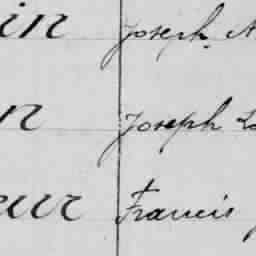 in Joseph
n Joseph
eur Francis